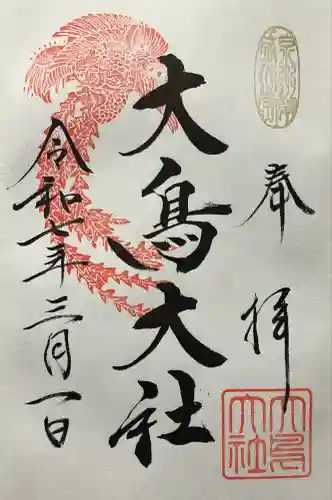 奉拝
大鳥大社
令和七年三月一日
大鳥
大社